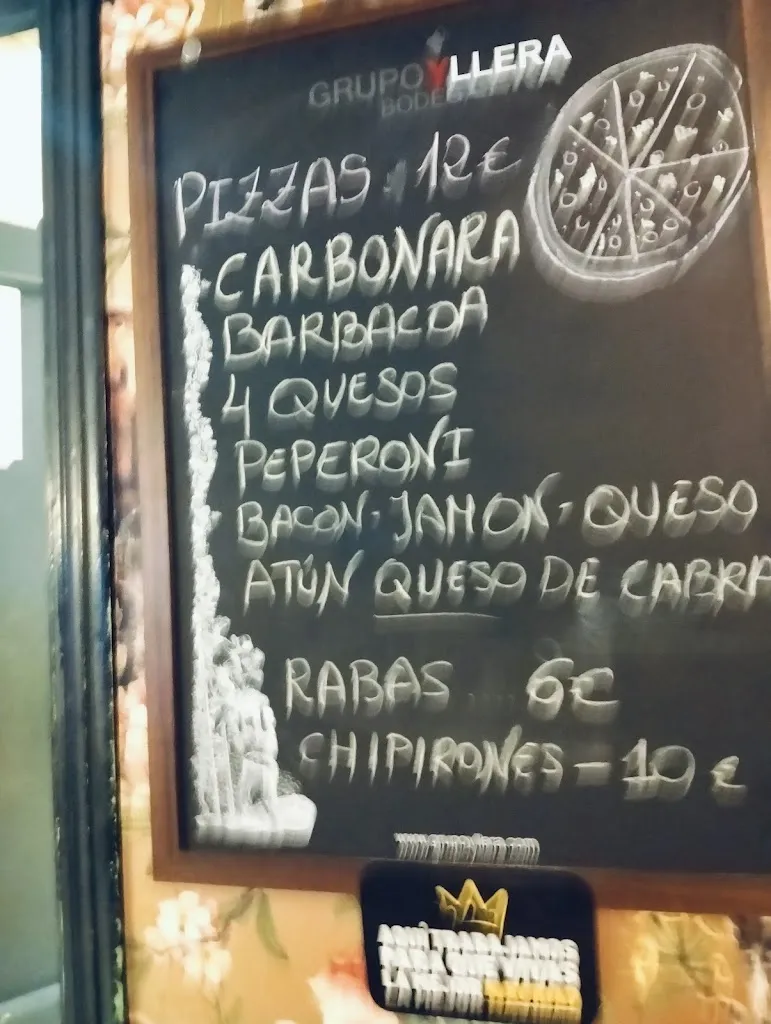 GRUPO YLLERA
PIZZAS . 12€
CARBONARA
BARBACOA
4 QUESOS
PEPERONI
BACON - JAMON - QUESO
ATÚN QUESO DE CABRA
RABAS ... 6€
CHIPIRONES - 10 €
AQUÍ TRABAJAMOS
PARA QUE VIVAS
LA MEJOR